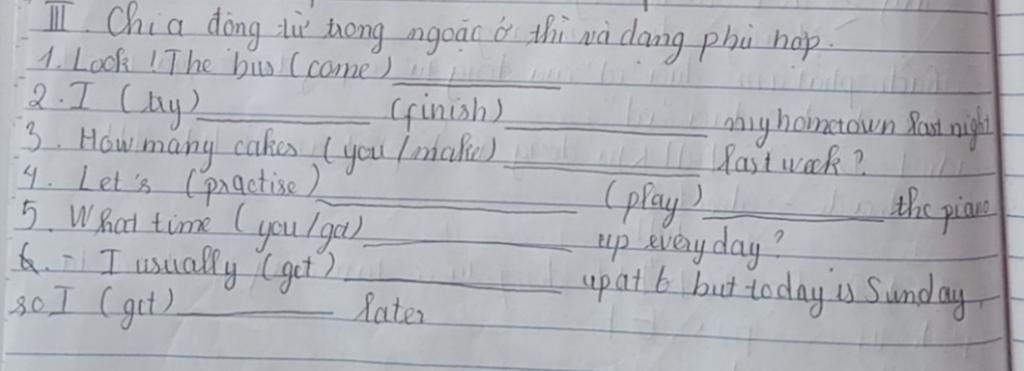 III. Chia động từ trong ngoặc ở thì và dạng phù hợp.
1. Look ! The bus (come) __________
2. I (try) __________ (finish) __________ my hometown last night
3. How many cakes (you/make) __________ last week?
4. Let's (practise) __________ (play) __________ the piano
5. What time (you/get) __________ up every day?
6. - I usually (get) __________ up at 6 but today is Sunday,
so I (get) __________ later